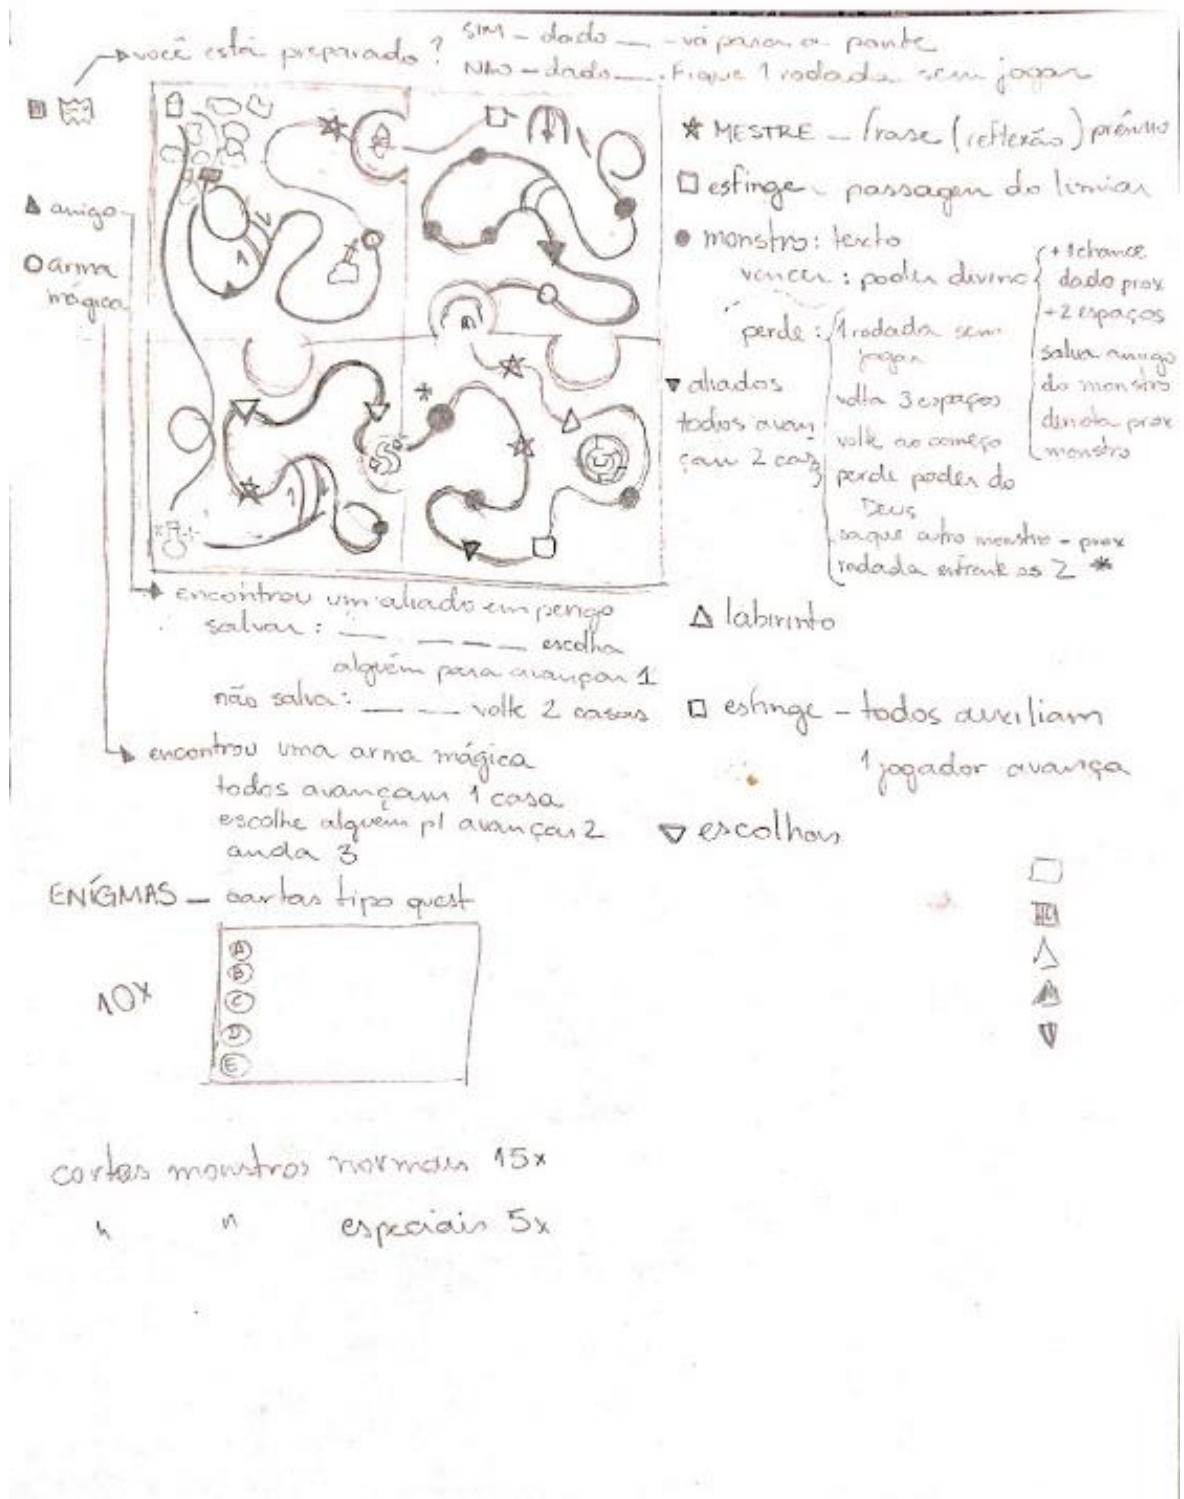 você está preparado?
SIM - dado __ - vá para a ponte
NÃO - dado __. Fique 1 rodada sem jogar
amigo
arma
mágica
MESTRE - frase (reflexão) prêmio
esfinge - passagem do limiar
monstro: texto
vencer: poder divino
+1 chance
dado prox
+2 espaços
salva amigo
do monstro
derrota prox
monstro
perde: 1 rodada sem
jogar
volta 3 espaços
volte ao começo
perde poder do
Deus
saque outro monstro - prox
rodada enfrente os 2 *
aliados
todos avan
çam 2 casas
*
encontrou um aliado em perigo
salvar: __ __ __ __ escolha
alguém para avançar 1
não salva: __ __ volte 2 casas
encontrou uma arma mágica
todos avançam 1 casa
escolhe alguém p/ avançar 2
anda 3
labirinto
esfinge - todos auxiliam
1 jogador avança
escolhas
ENÍGMAS - cartas tipo quest
10x
A
B
C
D
E
cartas monstros normais 15x
" " especiais 5x